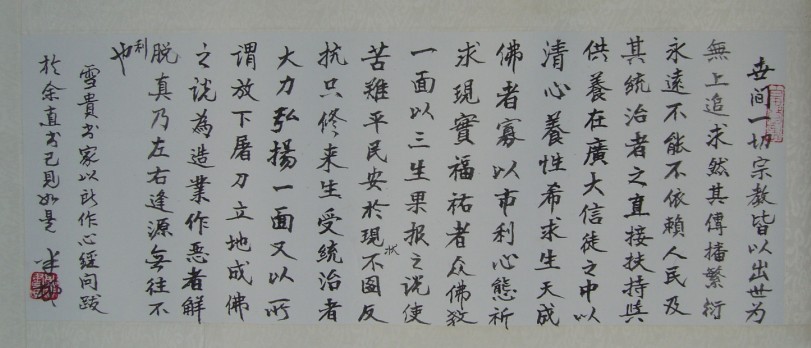 世间一切宗教皆以出世为
無上追求然其傳播繁衍
永遠不能不依賴人民及
其统治者之直接扶持與
供養在廣大信徒之中以
清心養性希求生天成
佛者寡以市利心態祈
求現實福祐者众佛教
一面以三生果报之说使
苦難平民安於現状不图反
抗只修来生受统治者
大力弘揚一面又以所
谓放下屠刀立地成佛
之说為造業作恶者解
脱真乃左右逢源無往不
利也
雪貴书家以所作心經向跋
於余直书己見如是